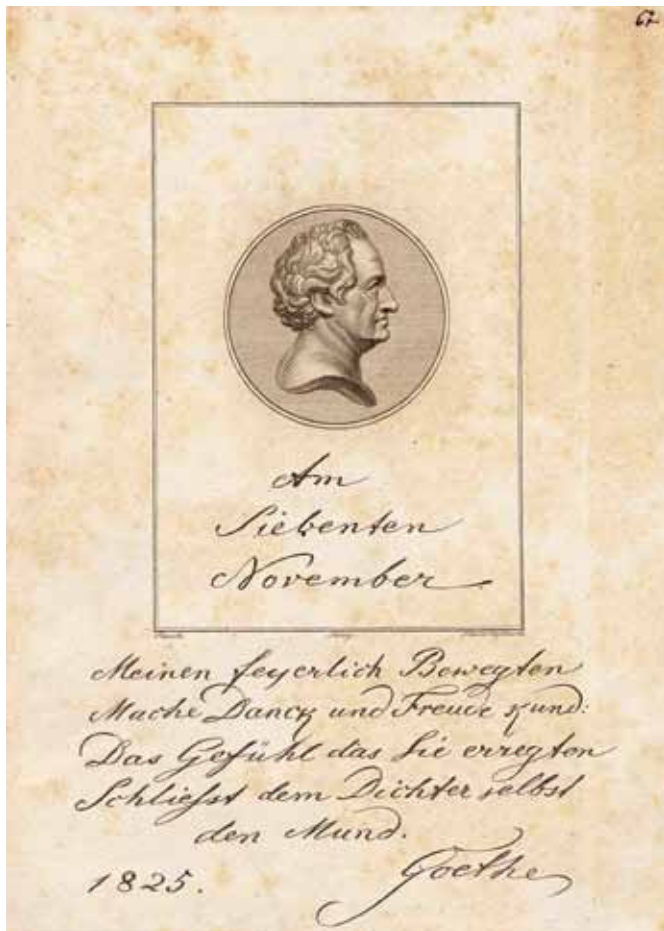 62
Am
Siebenten
November
Meinen feyerlich Bewegten
Mache Danck und Freude kund:
Das Gefühl das Sie erregten
Schliesst dem Dichter selbst
den Mund.
1825.
Goethe